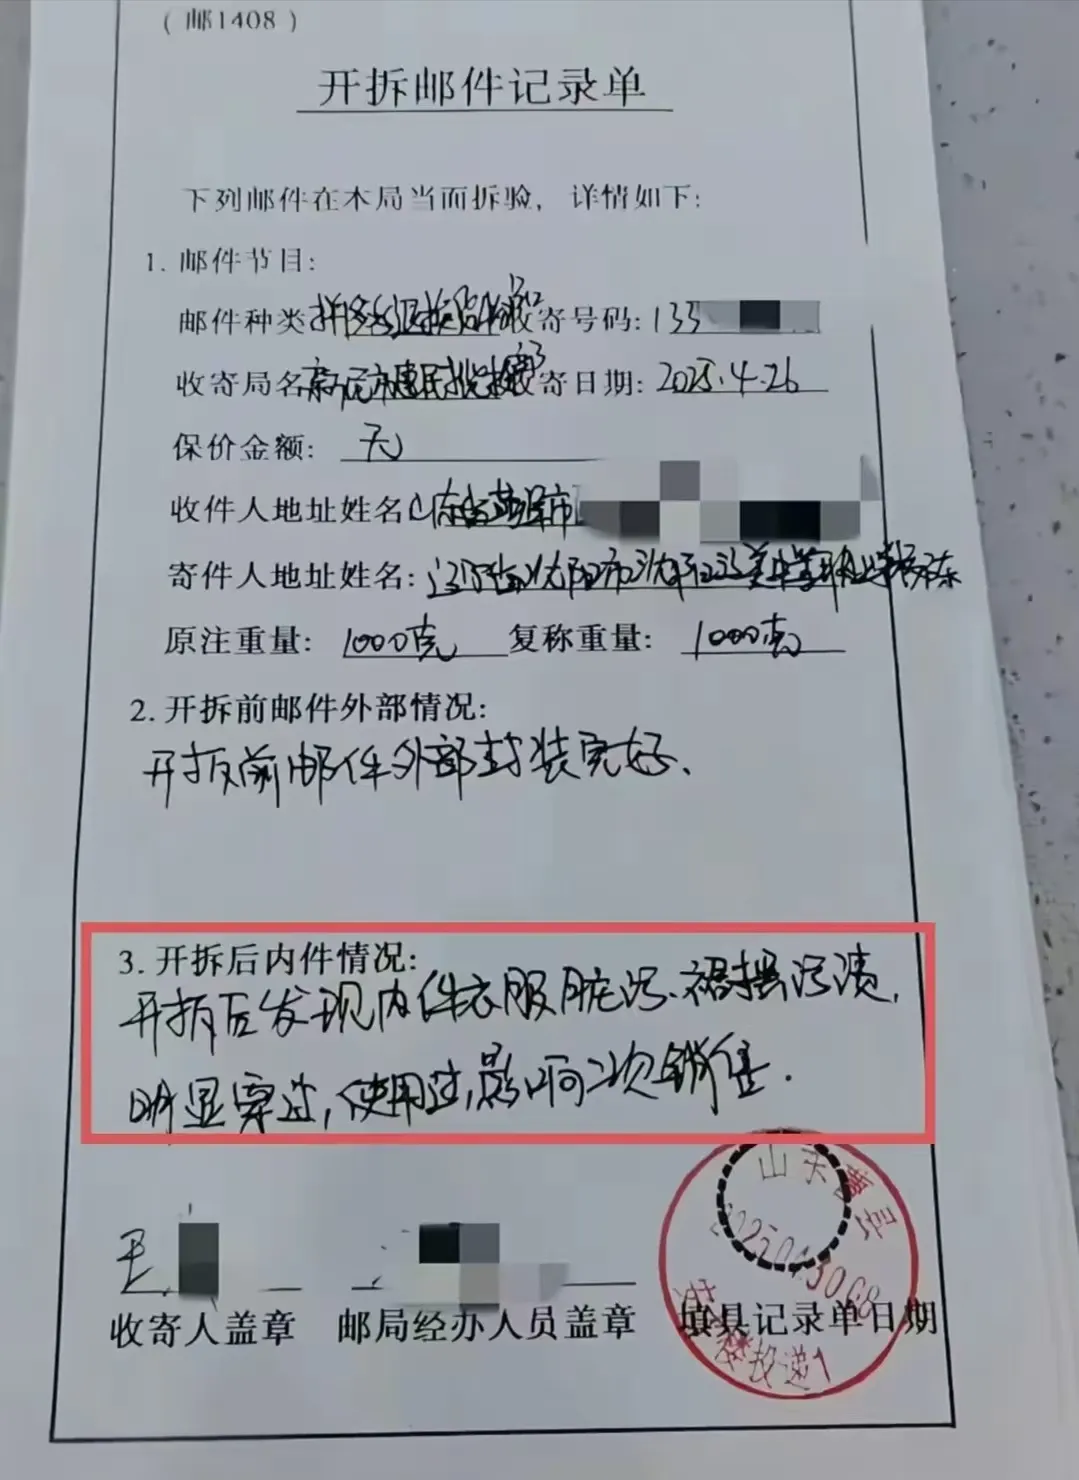 （邮1408）
开拆邮件记录单
下列邮件在本局当面拆验，详情如下：
1. 邮件节目：
邮件种类 收寄号码: 133
收寄局名 收寄日期: 2025.4.26
保价金额: 无
收件人地址姓名 山东省
寄件人地址姓名: 辽宁省沈阳市
原注重量: 1000克 复称重量: 1000克
2. 开拆前邮件外部情况:
开拆前邮件外部封装完好、
3. 开拆后内件情况:
开拆后发现内件衣服脏污、裙摆污渍,
明显穿过,使用过,影响二次销售.
山东
王
收寄人盖章 邮局经办人员盖章 填具记录单日期
投递1